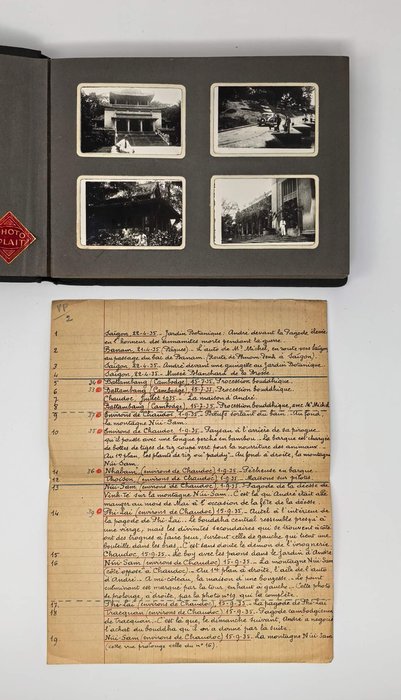 PHOTO
PLAIT
VP
2
1 Saïgon, 22-4-35. Jardin Botanique. André devant la Pagode élevée
en l'honneur des annamites morts pendant la guerre.
2 Banam, 21-4-35 (Pâques). L'auto de Mr Michel, en route vers Saïgon
au passage du bac de Banam. (Route de Phnom-Penh à Saïgon).
3 Saïgon, 22-4-35. André devant une au Jardin Botanique.
4 Saïgon, 22-4-35. Musée "Blanchard de la Brosse
5 Battambang (Cambodge) 15-7-35. Procession bouddhique.
6 Battambang (Cambodge) 15-7-35. Procession bouddhique.
7 Chaudoc, Juillet 1935. La maison d'André.
8 Battambang (Cambodge) 15-7-35. Procession bouddhique, avec Mr Michel
9 Environs de Chaudoc, 1-9-35. Buffles sortant du bain. Au fond,
la montagne Nüi-Sam.
10 Environs de Chaudoc, 1-9-35. Paysan à l'arrière de sa pirogue
qu'il pousse avec une longue perche en bambou. La barque est chargée
de bottes de tiges de riz coupé vert pour la nourriture des animaux
Au 1er plan, les plants de riz ou "paddy". Au fond à droite, la montagne
Nüi-Sam.
11 Nhabani (environs de Chaudoc) 1-9-35. Pêcheuse en barque.
12 Thoison (environs de Chaudoc) 1-9-35. Maisons sur pilotis
13 Nüi-Sam (environs de Chaudoc) 1-9-35. Pagode de la déesse de
Vinh-Te sur la montagne Nüi-Sam. C'est là qu'André était allé
manger au mois de Mai à l'occasion de la fête de la déesse.
14 Phi-Lai (environs de Chaudoc) 15-9-35. Autel à l'intérieur de
la pagode de Phi-Lai. Le bouddha central ressemble presqu'à
une vierge, mais les divinités secondaires qui se trouvent à côté
ont des trognes à faire peur, surtout celle de gauche qui tient une
bouteille dans les bras. C'est sans doute le démon de l'ivrognerie.
15 Chaudoc, 15-9-35. Le boy avec les paons dans le jardin d'André
16 Nüi Sam (environs de Chaudoc) 15-9-35. La montagne Nüi Sam
(côté opposé à Chaudoc). Au 1er plan à droite, l'aile de l'auto
d'André. A mi-côteau, la maison d'une bonzesse. Le point
culminant est marqué par la tour, en haut à gauche. Cette photo
se prolonge, à droite, par la photo n°19 qui la complète.
17 Phi-Lai (environs de Chaudoc), 15-9-35. La pagode de Phi-Lai
18 Tracquan (environs de Chaudoc) 15-9-35. Pagode cambodgienne
de Tracquan. C'est là que, le dimanche suivant, André a négocié
l'achat du bouddha qu'il m'a donné par la suite.
19 Nüi-Sam (environs de Chaudoc) 15-9-35. La montagne Nüi-Sam
(cette vue prolonge celle du n° 16)